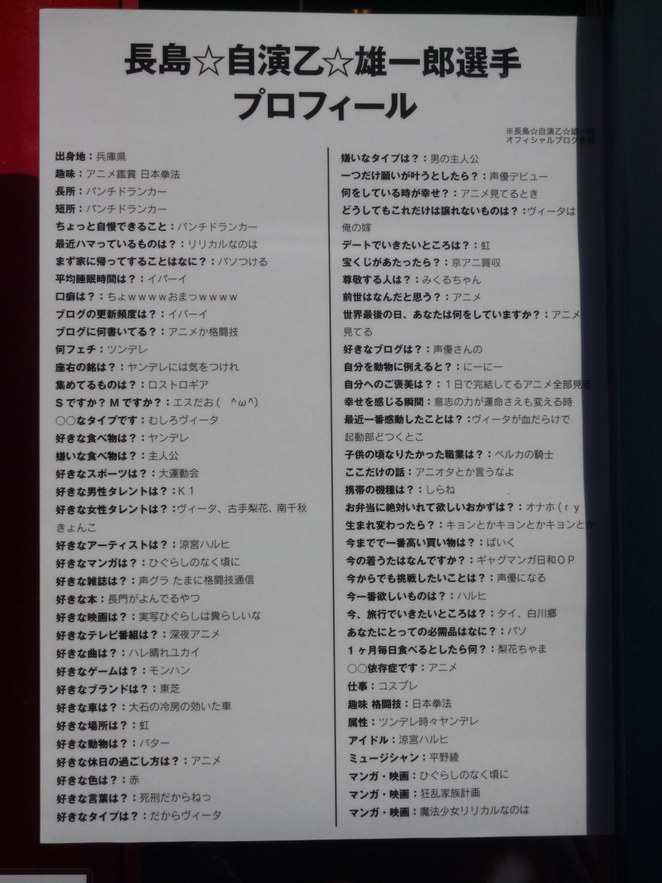 長島☆自演乙☆雄一郎選手
プロフィール
※長島☆自演乙☆雄一郎
オフィシャルブログ参照
出身地：兵庫県
趣味：アニメ鑑賞 日本拳法
長所：パンチドランカー
短所：パンチドランカー
ちょっと自慢できること：パンチドランカー
最近ハマっているものは？：リリカルなのは
まず家に帰ってすることはなに？：パソつける
平均睡眠時間は？：イパーイ
口癖は？：ちょｗｗｗｗおまっｗｗｗｗ
ブログの更新頻度は？：イパーイ
ブログに何書いてる？：アニメか格闘技
何フェチ：ツンデレ
座右の銘は？：ヤンデレには気をつけれ
集めてるものは？：ロストロギア
Sですか？Mですか？：エスだお( ^ω^)
〇〇なタイプです：むしろヴィータ
好きな食べ物は？：ヤンデレ
嫌いな食べ物は？：主人公
好きなスポーツは？：大運動会
好きな男性タレントは？：K１
好きな女性タレントは？：ヴィータ、古手梨花、南千秋
きょんこ
好きなアーティストは？：涼宮ハルヒ
好きなマンガは？：ひぐらしのなく頃に
好きな雑誌は？：声グラ たまに格闘技通信
好きな本：長門がよんでるやつ
好きな映画は？：実写ひぐらしは糞らしいな
好きなテレビ番組は？：深夜アニメ
好きな曲は？：ハレ晴れユカイ
好きなゲームは？：モンハン
好きなブランドは？：東芝
好きな車は？：大石の冷房の効いた車
好きな場所は？：虹
好きな動物は？：バター
好きな休日の過ごし方は？：アニメ
好きな色は？：赤
好きな言葉は？：死刑だからねっ
好きなタイプは？：だからヴィータ
嫌いなタイプは？：男の主人公
一つだけ願いが叶うとしたら？：声優デビュー
何をしている時が幸せ？：アニメ見てるとき
どうしてもこれだけは譲れないものは？：ヴィータは
俺の嫁
デートでいきたいところは？：虹
宝くじがあたったら？：京アニ買収
尊敬する人は？：みくるちゃん
前世はなんだと思う？：アニメ
世界最後の日、あなたは何をしていますか？：アニメ
見てる
好きなブログは？：声優さんの
自分を動物に例えると？：にーにー
自分へのご褒美は？：１日で完結してるアニメ全部見る
幸せを感じる瞬間：意志の力が運命さえも変える時
最近一番感動したことは？：ヴィータが血だらけで
起動部どつくとこ
子供の頃なりたかった職業は？：ベルカの騎士
ここだけの話：アニオタとか言うなよ
携帯の機種は？：しらね
お弁当に絶対いれて欲しいおかずは？：オナホ(ｒｙ
生まれ変わったら？：キョンとかキョンとかキョンとか
今までで一番高い買い物は？：ばいく
今の着うたはなんですか？：ギャグマンガ日和ＯＰ
今からでも挑戦したいことは？：声優になる
今一番欲しいものは？：ハルヒ
今、旅行でいきたいところは？：タイ、白川郷
あなたにとっての必需品はなに？：パソ
１ヶ月毎日食べるとしたら何？：梨花ちゃま
〇〇依存症です：アニメ
仕事：コスプレ
趣味 格闘技：日本拳法
属性：ツンデレ時々ヤンデレ
アイドル：涼宮ハルヒ
ミュージシャン：平野綾
マンガ・映画：ひぐらしのなく頃に
マンガ・映画：狂乱家族計画
マンガ・映画：魔法少女リリカルなのは